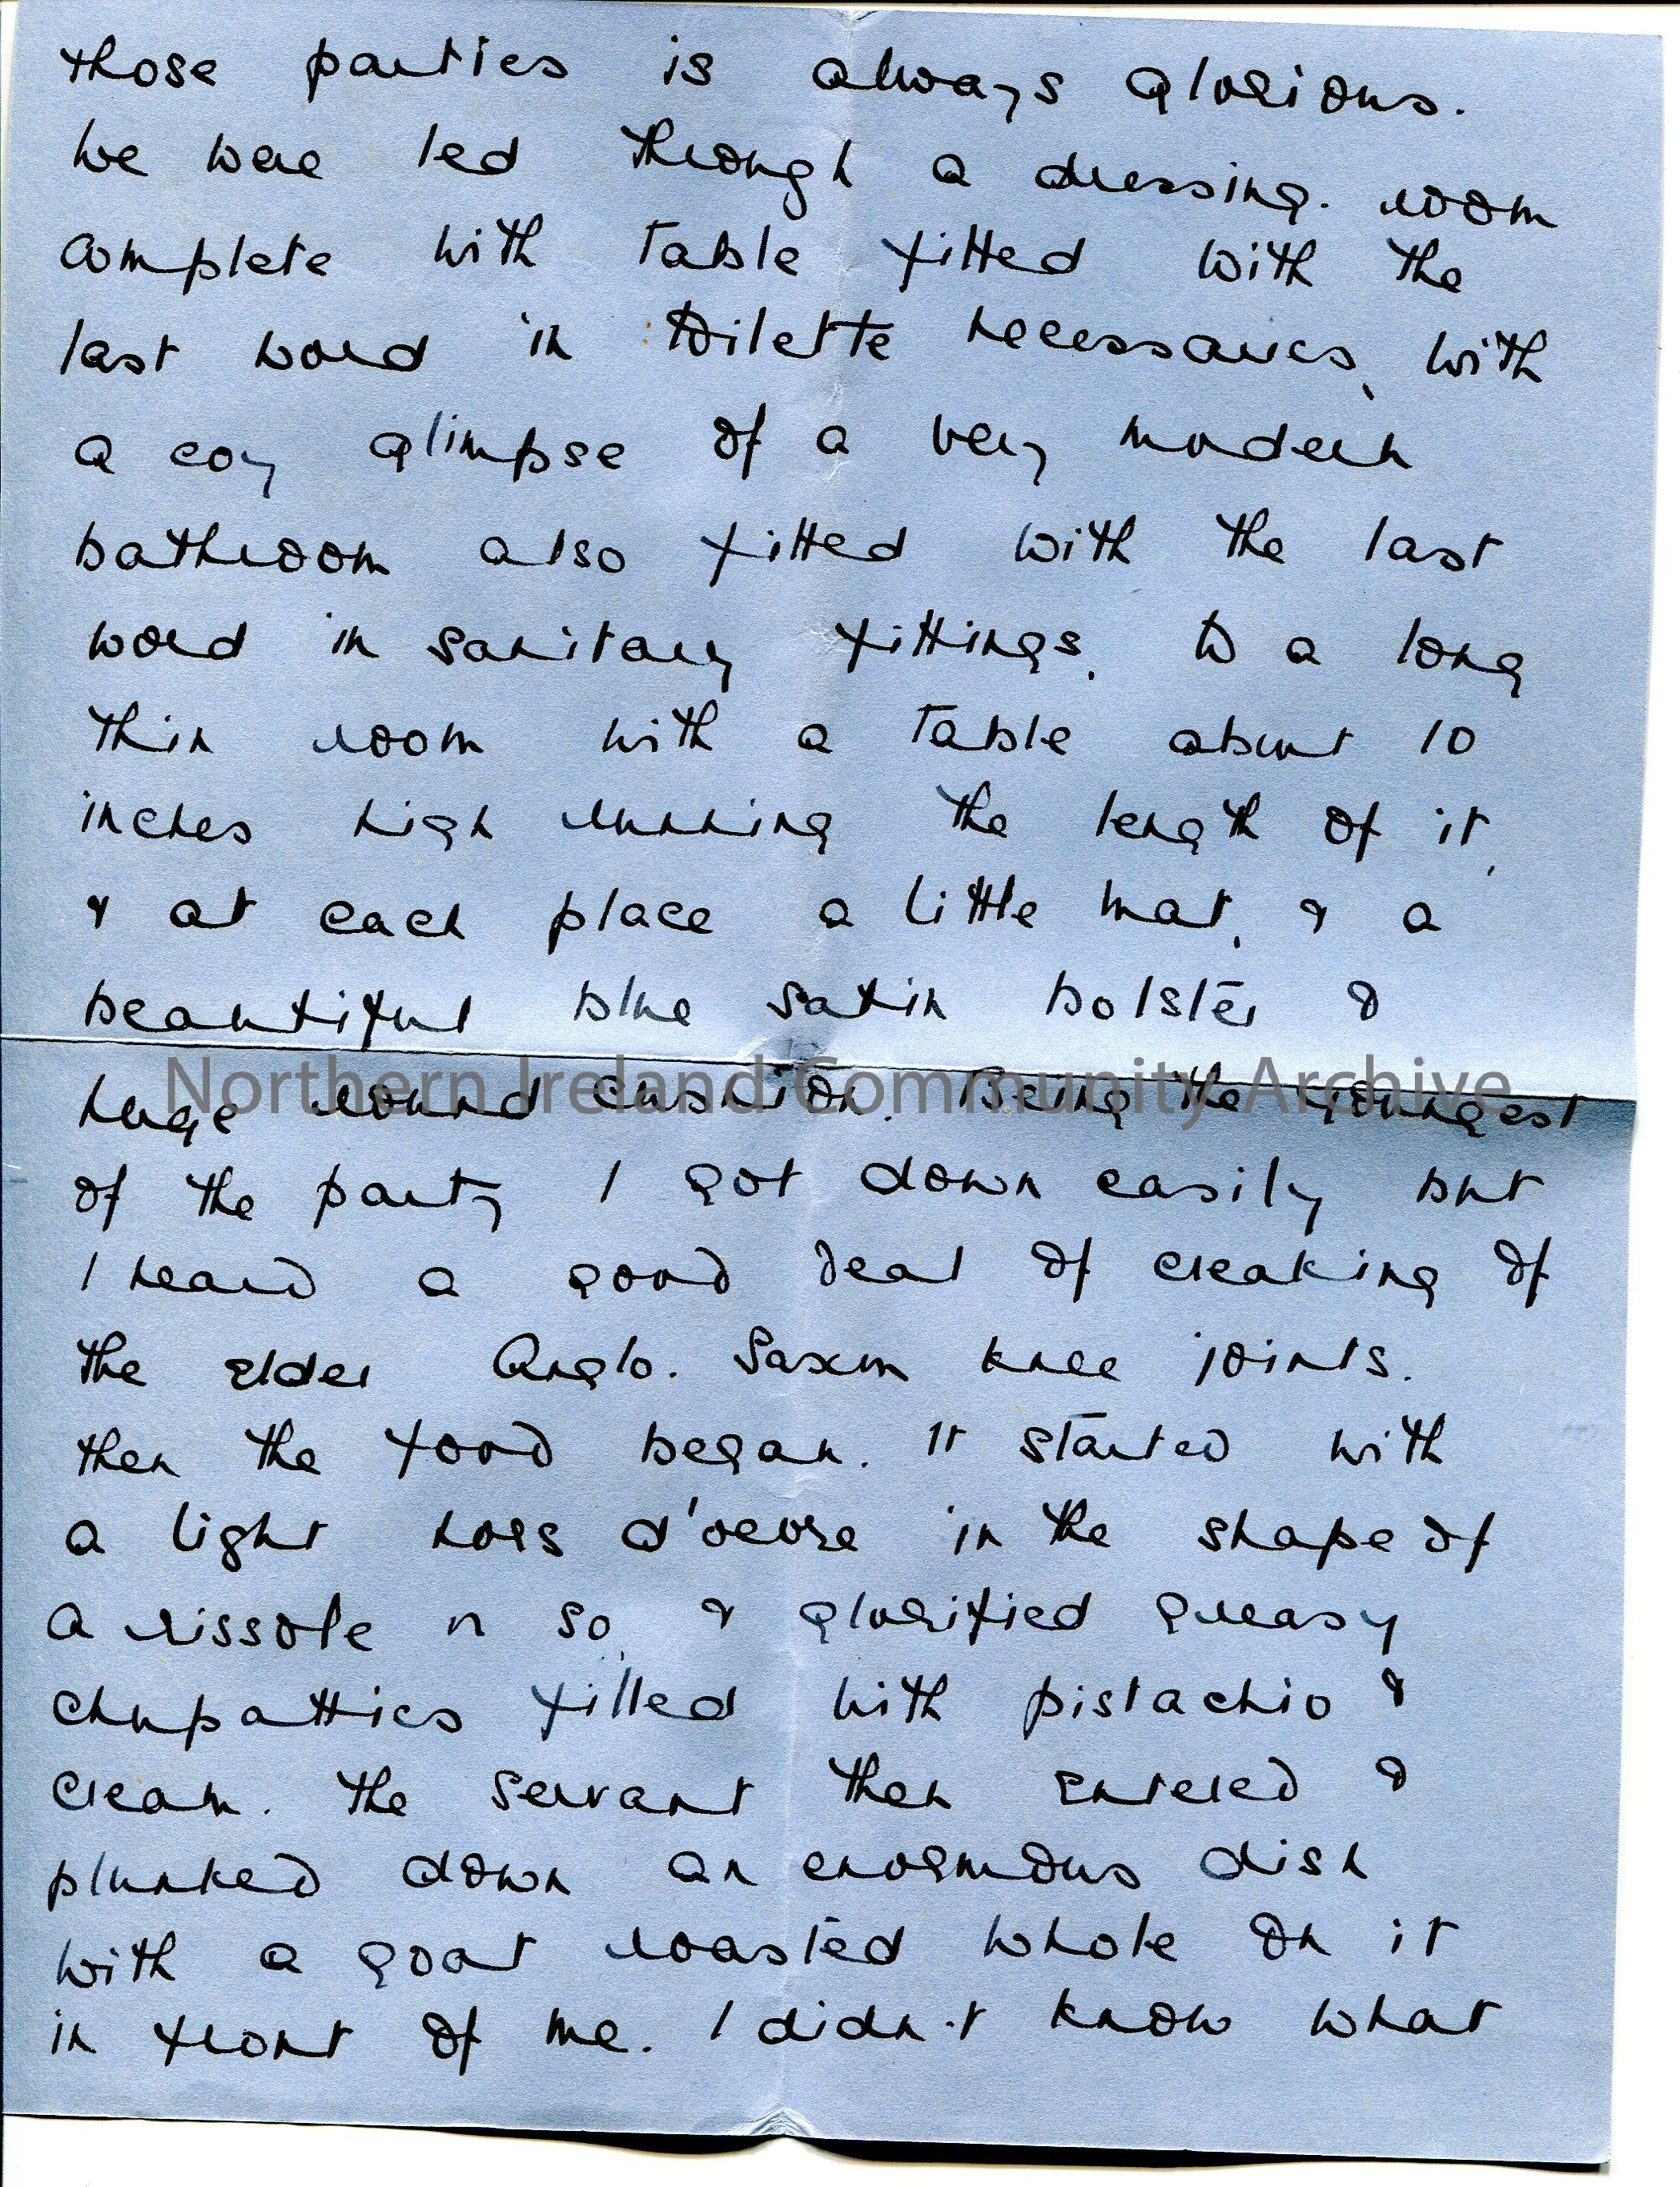 those parties is always glorious.
We were led through a dressing. room
complete with table fitted with the
last word in toilette necessaries, with
a coy glimpse of a very modern
bathroom also fitted with the last
word in sanitary fittings, to a long
thin room with a table about 10
inches high running the length of it,
& at each place a little mat, & a
beautiful blue satin bolster &
Northern Ireland Community Archive
huge round cushion. Being the youngest
of the party I got down easily but
I heard a good deal of creaking of
the elder Anglo. Saxon knee joints.
then the food began. It started with
a light hors d'oevre in the shape of
a rissole or so, & glorified greasy
chupatties filled with pistachio &
cream. The servant then entered &
plunked down an enormous dish
with a goat roasted whole on it
in front of me. I didn't know what